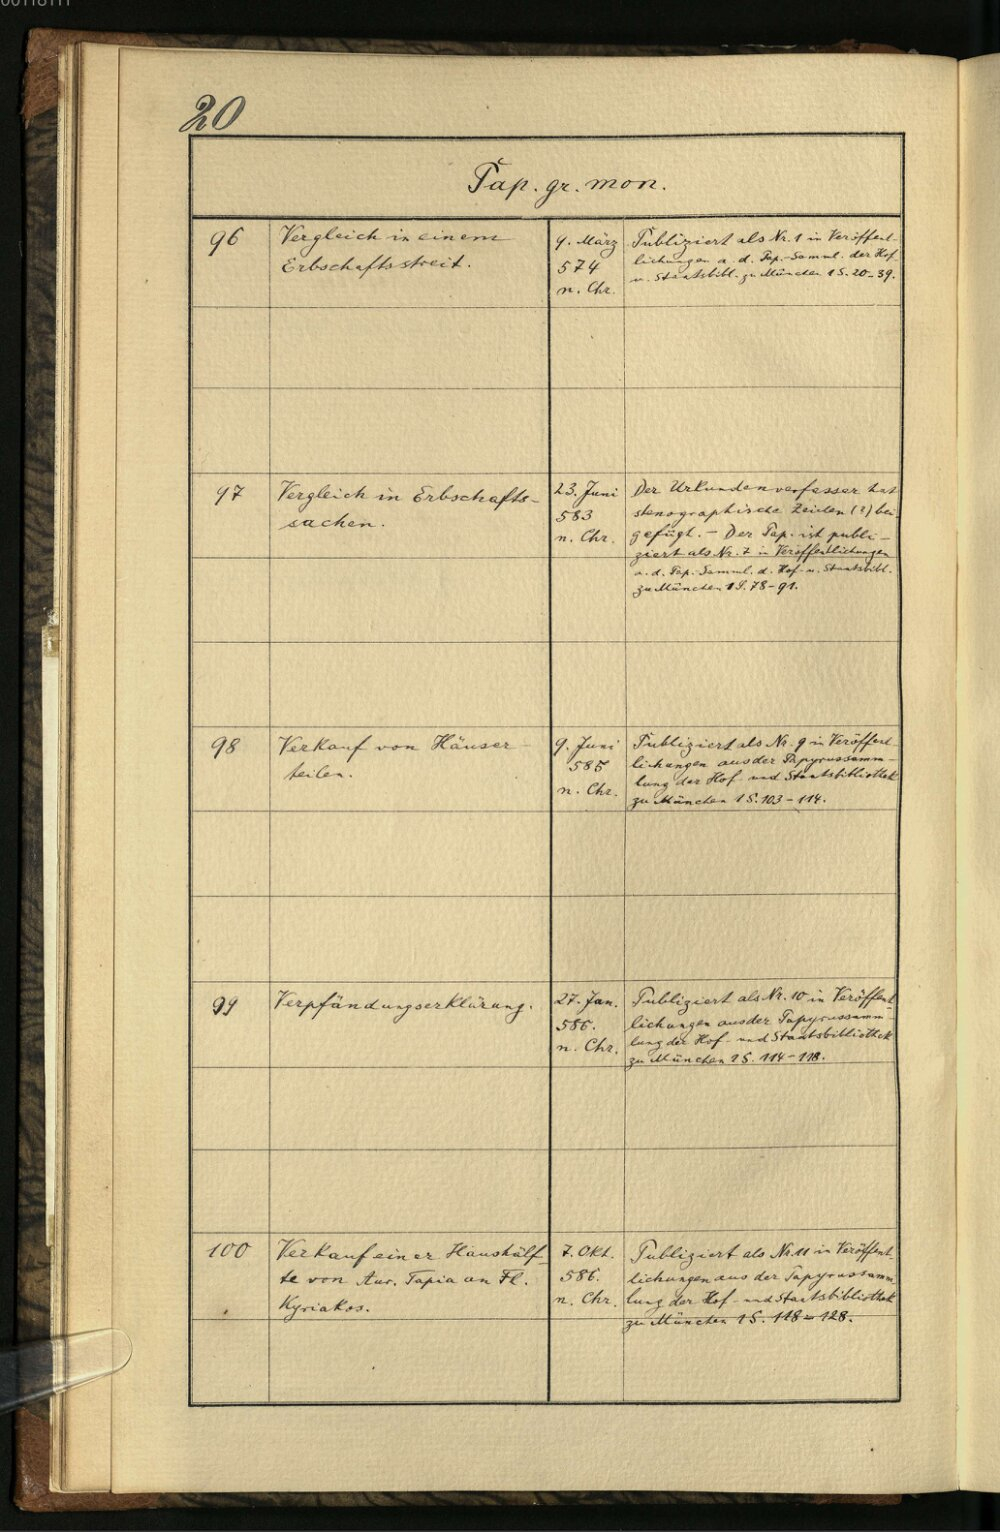 00118111
20
Pap. gr. mon.
96
Vergleich in einem
Erbschaftsstreit.
9. März
574
n. Chr.
Publiziert als Nr. 1 in Veröffent-
lichungen a. d. Pap.-Samml. der Hof
u. Staatsbibl. zu München 1 S. 20-39.
97
Vergleich in Erbschafts-
sachen.
23. Juni
583
n. Chr.
Der Urkundenverfasser hat
stenographische Zeichen (?) bei
gefügt. - Der Pap. ist publi-
ziert als Nr. 7 in Veröffentlichungen
a. d. Pap. Samml. d. Hof- u. Staatsbibl.
zu München 1 S. 78-91.
98
Verkauf von Häuser-
teilen.
9. Juni
585
n. Chr.
Publiziert als Nr. 9 in Veröffent-
lichungen aus der Papyrussamm-
lung der Hof- und Staatsbibliothek
zu München 1 S. 103-114.
99
Verpfändungserklärung.
27. Jan.
586.
n. Chr.
Publiziert als Nr. 10 in Veröffent-
lichungen aus der Papyrussamm-
lung der Hof- und Staatsbibliothek
zu München 1 S. 114-118.
100
Verkauf einer Haushälf-
te von Aur. Tapia an Fl.
Kyriakos.
7. Okt.
586.
n. Chr.
Publiziert als Nr. 11 in Veröffent-
lichungen aus der Papyrussamm-
lung der Hof- und Staatsbibliothek
zu München 1 S. 118-128.